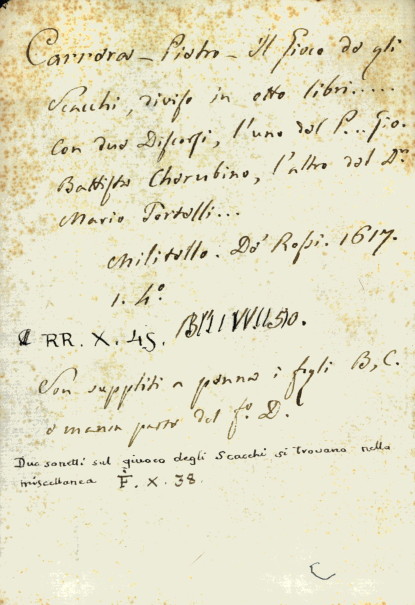 Carrera - Pietro - Il Gioco de gli
Scacchi, diviso in otto libri.....
Con due Discorsi, l'uno del P... Gio.
Battista Cherubino, l'altro del Dr.
Mario Tortelli...
Militello. De' Rossi. 1617.
1. 4º.
RR. X. 45.
Son suppliti a penna i fogli B, C.
e manca parte del fº. D.
Due sonetti sul giuoco degli Scacchi si trovano nella
miscellanea F. X. 38.